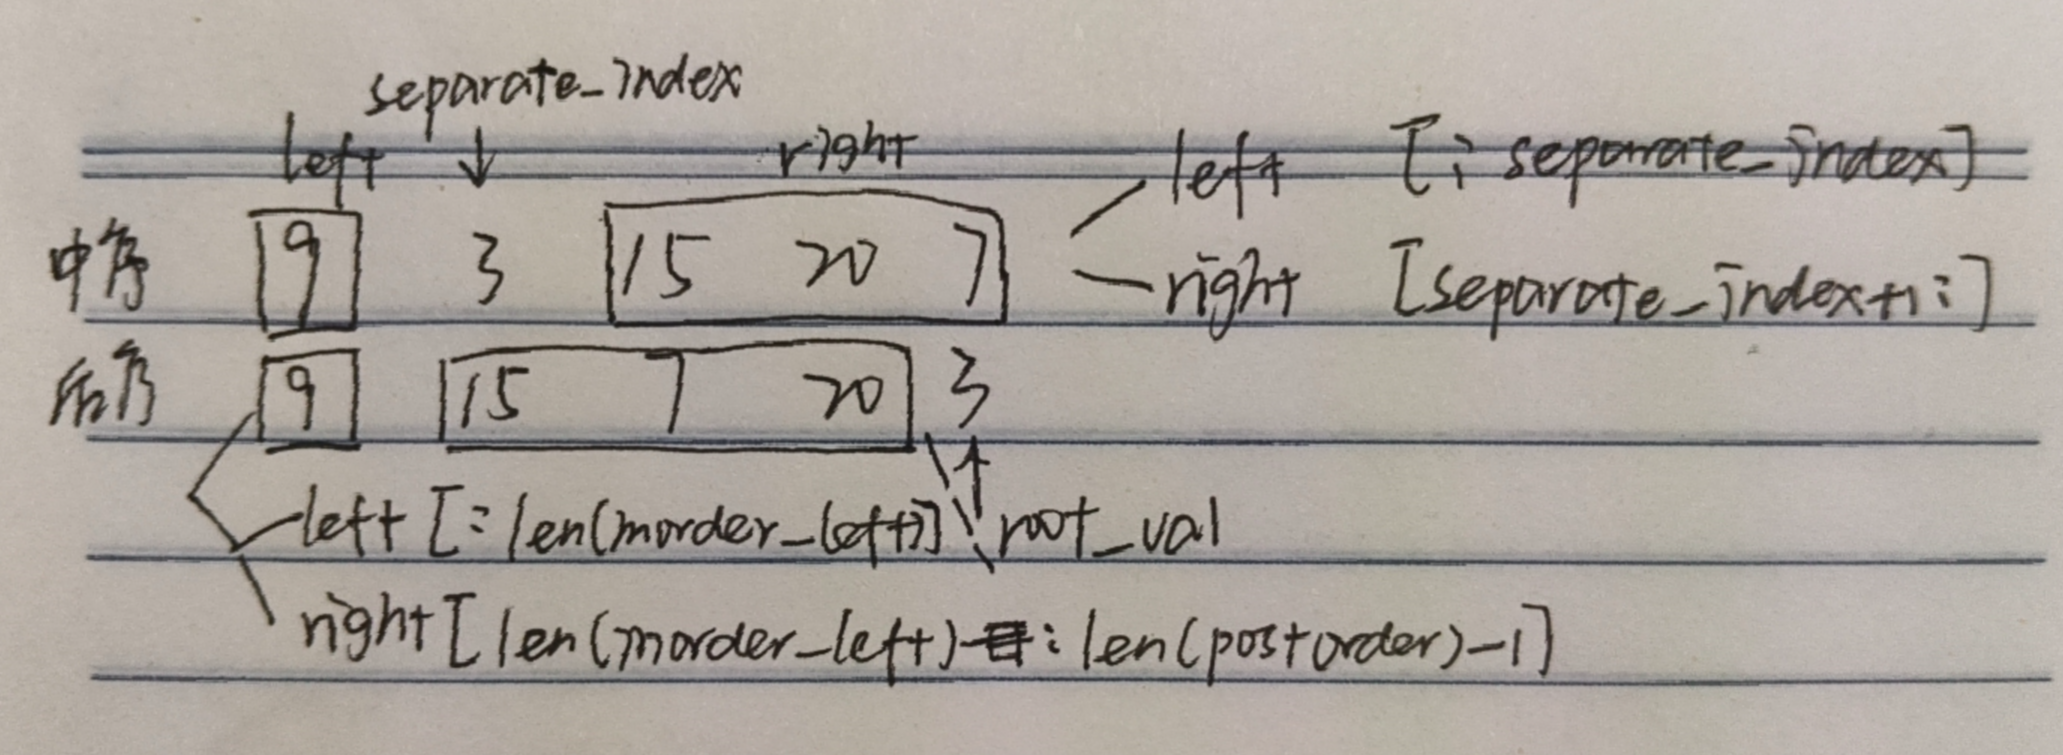 separate_index
left ↓ right
left [: separate_index]
中序 9 3 15 20 7
right [separate_index+1:]
后序 9 15 7 20 3
left [:len(inorder_left)] root_val
right [len(inorder_left):len(postorder)-1]